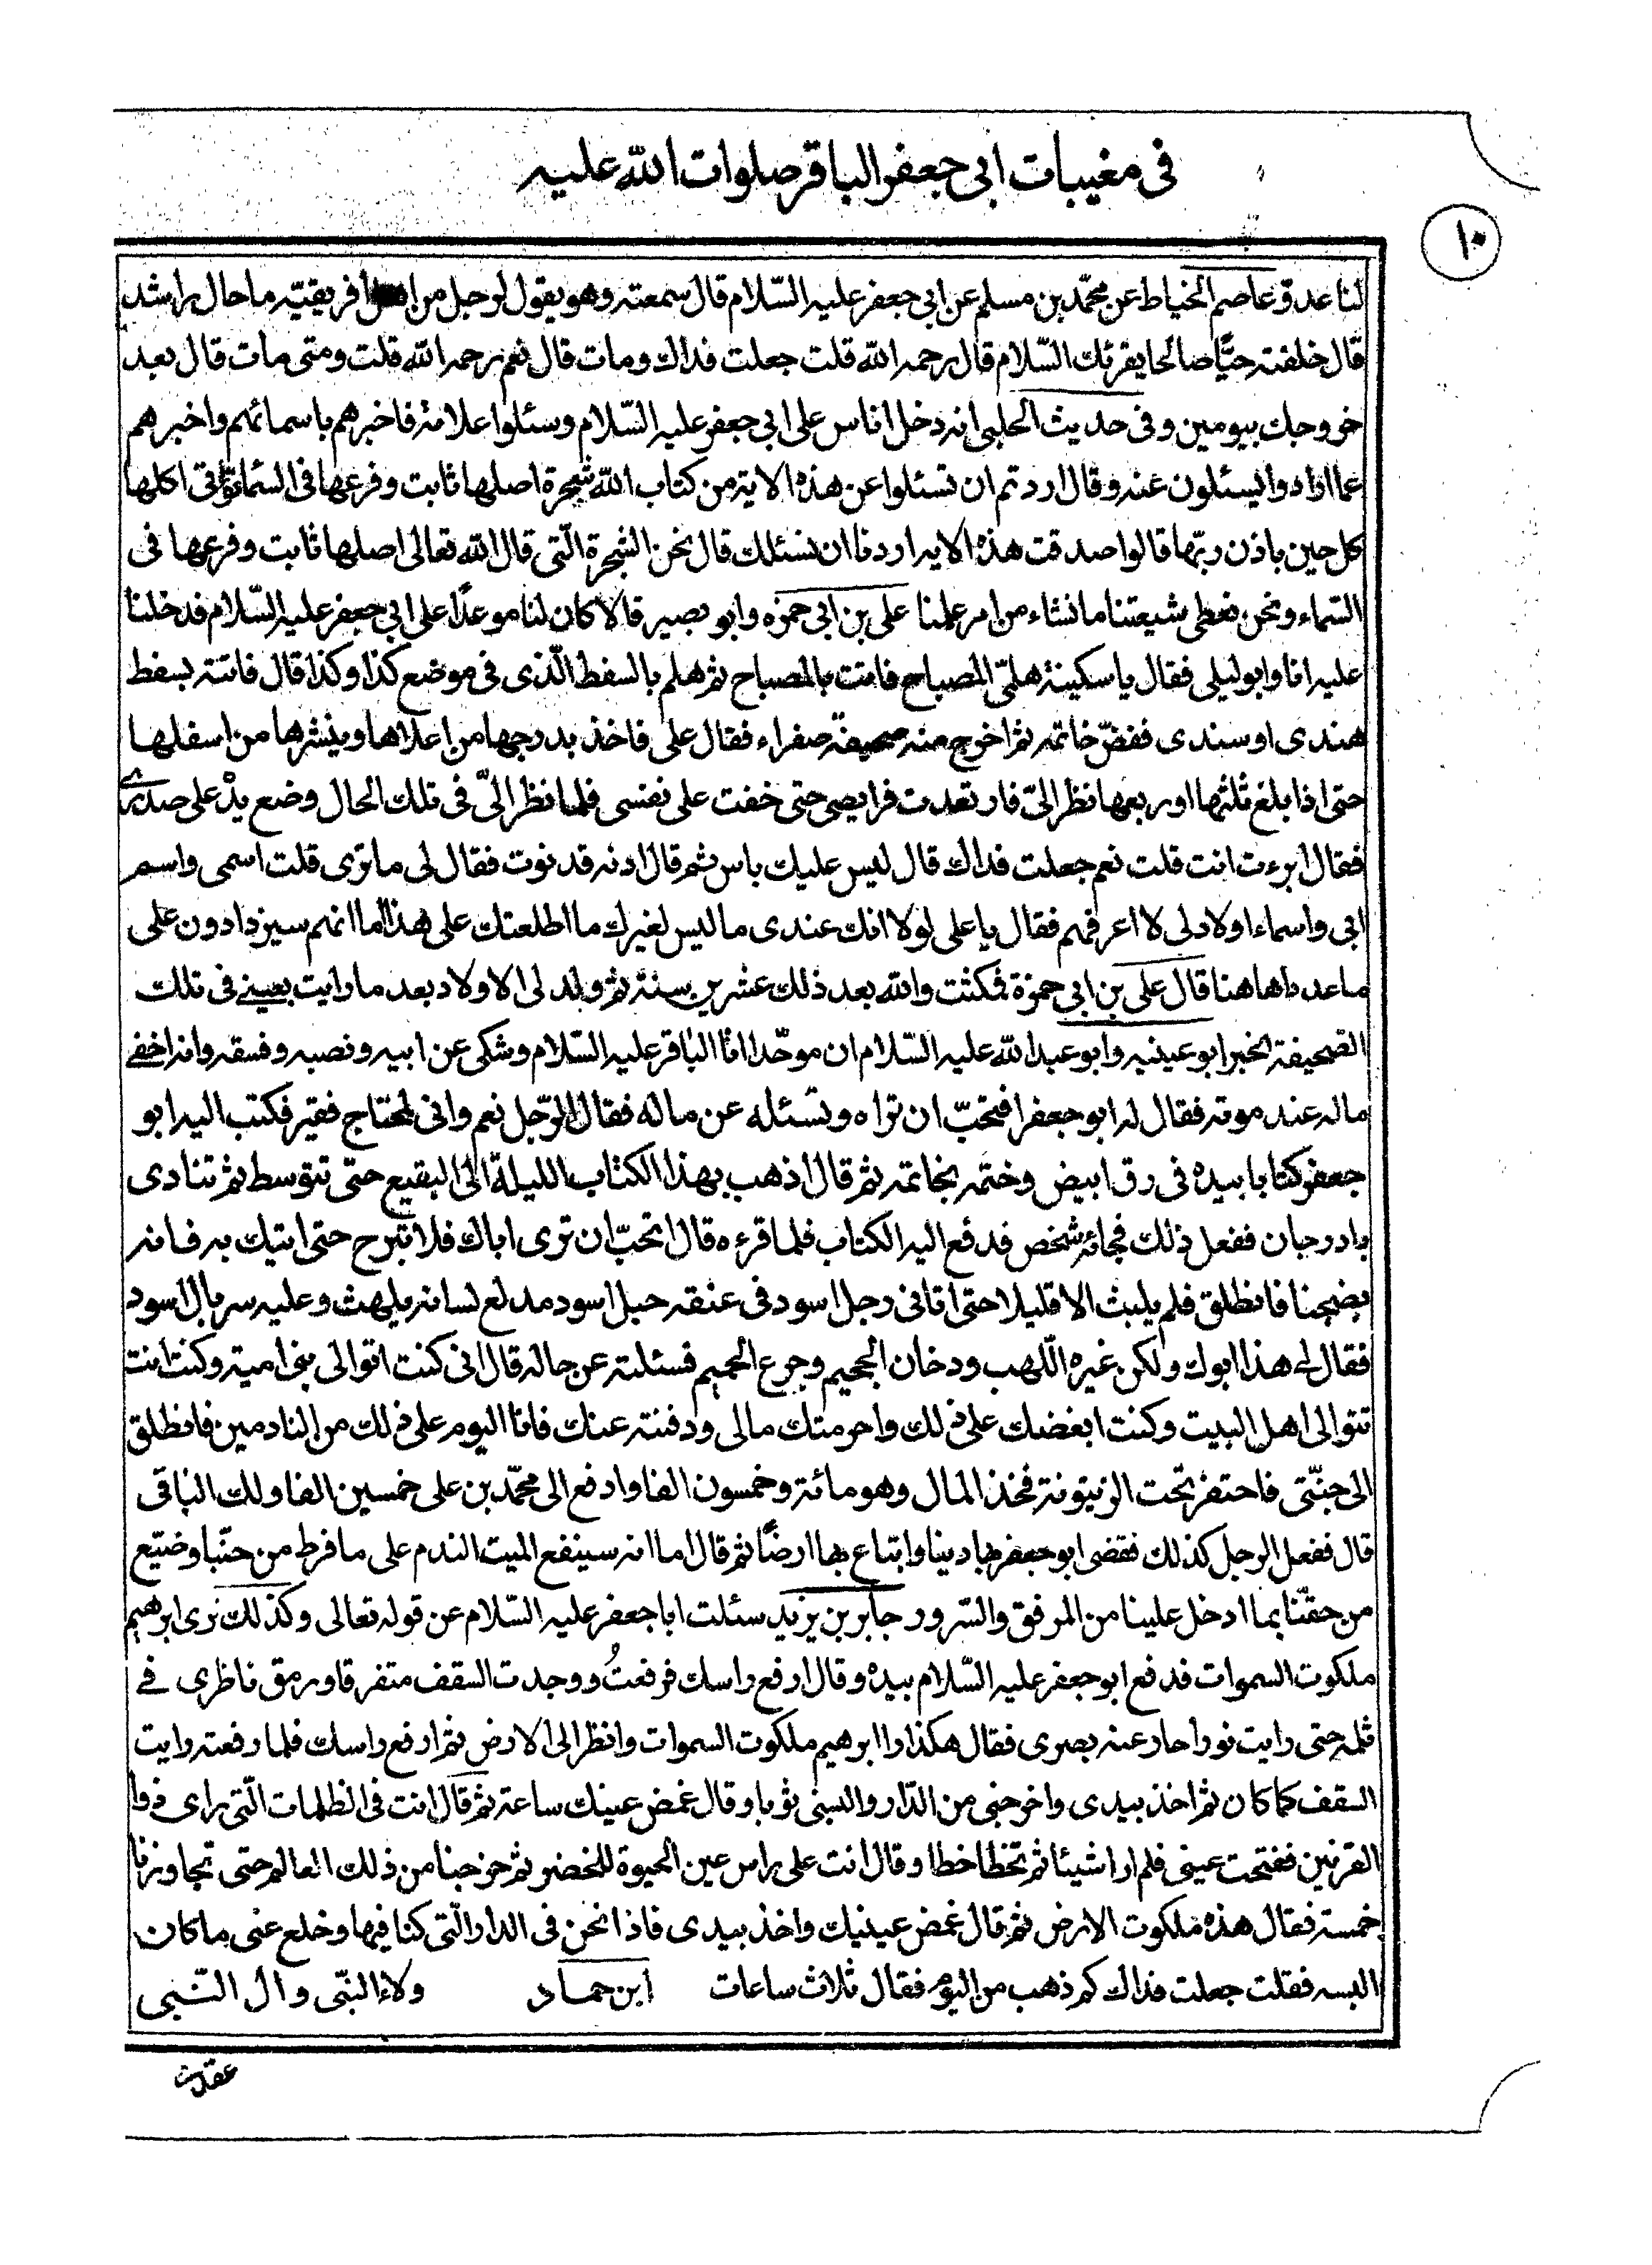 فى مغيبات ابى جعفر الباقر صلوات الله عليه
١٠
لنا عدو عاصم الحناط عن محمّد بن مسلم عن ابى جعفر عليه السّلام قال سمعته وهو يقول لرجل من اهل افريقيّه ما حال راشد
قال خلفته حيّا صالحا يقرئك السّلام قال رحمه الله قلت جعلت فداك ومات قال نعم رحمه الله قلت ومتى مات قال بعد
خروجك بيومين وفى حديث الحلبى انه دخل اناس على ابى جعفر عليه السّلام وسئلوا علامة فاخبرهم باسمائهم واخبرهم
عما ارادوا يسئلون عنه وقال اردتم ان تسئلوا عن هذه الاية من كتاب الله شجرة اصلها ثابت وفرعها فى السّماء تؤتى اكلها
كل حين باذن ربّها قالوا صدقت هذه الايه اردنا ان نسئلك قال نحن الشجرة الّتى قال الله تعالى اصلها ثابت وفرعها فى
السّماء ونحن نعطى شيعتنا ما نشاء من امر علمنا على بن ابى حمزه وابو بصير قالا كان لنا موعدا على ابى جعفر عليه السّلام فدخلنا
عليه انا وابو ليلى فقال يا سكينة هلمّى المصباح فاتت بالمصباح ثم هلم بالسفط الّذى فى موضع كذا وكذا قال فاتته بسفط
هندى او سندى ففضّ خاتمه ثم اخرج منه صحيفة صفراء فقال على فاخذ يدرجها من اعلاها وينشرها من اسفلها
حتى اذا بلغ ثلثها او ربعها نظر الىّ فارتعدت فرايصى حتى خفت على نفسى فلما نظر الىّ فى تلك الحال وضع يده على صدرى
فقال ابرءت انت قلت نعم جعلت فداك قال ليس عليك باس ثم قال ادنه فدنوت فقال لى ما ترى قلت اسمى واسم
ابى واسماء اولاد لى لا اعرفهم فقال يا على لولا انك عندى ما ليس لغيرك ما اطلعتك على هذا اما انهم سيزدادون على
ما عدد ها هنا قال على بن ابى حمزة فمكثت والله بعد ذلك عشرين سنة ثم ولد لى الاولاد بعد ما رايت بعينى فى تلك
الصّحيفة الخبر ابو عيينه وابو عبد الله عليه السّلام ان موحّدا اتا الباقر عليه السّلام وشكى عن ابيه ونصبه وفسقه وانه اخفى
ماله عند موته فقال له ابو جعفر افتحبّ ان تراه وتسئله عن ماله فقال الرّجل نعم وانى لمحتاج فقير فكتب اليه ابو
جعفر كتابا بيده فى رق ابيض وختمه بخاتمه ثم قال اذهب بهذا الكتاب الليلة الى البقيع حتّى تتوسط ثم تنادى
يا درجان ففعل ذلك فجائه شخص فدفع اليه الكتاب فلما قرءه قال اتحبّ ان ترى اباك فلا تبرح حتى اتيك به فانه
بضجنا فانطلق فلم يلبث الا قليلا حتى اتانى رجل اسود فى عنقه حبل اسود مدلع لسانه يلهث وعليه سربال اسود
فقال لى هذا ابوك ولكن غيره اللّهب ودخان الجحيم وجرع الحميم فسئلته عن حاله قال انى كنت اتوالى بنى امية وكنت انت
تتوالى اهل البيت وكنت ابغضك على ذلك واحرمتك مالى ودفنته عنك فانا اليوم على ذلك من النادمين فانطلق
الى جنّتى فاحتفر تحت الزيتونة فخذ المال وهو مائة وخمسون الفا وادفع الى محمّد بن على خمسين الفا ولك الباقى
قال ففعل الرجل كذلك فقضى ابو جعفر بها دينا وابتاع بها ارضا ثم قال اما انه سينفع الميت الندم على ما فرط من حبّنا وضيّع
من حقّنا بما ادخل علينا من المرفق والسّرور جابر بن يزيد سئلت ابا جعفر عليه السّلام عن قوله تعالى وكذلك نرى ابرهيم
ملكوت السموات فدفع ابو جعفر عليه السّلام بيده وقال ارفع راسك فرفعتُ ووجدت السقف متفرقا ورمق ناظرى فى
ثلمه حتى رايت نورا حار عنه بصرى فقال هكذا راى ابرهيم ملكوت السموات وانظر الى الارض ثم ارفع راسك فلما رفعته رايت
السقف كما كان ثم اخذ بيدى واخرجنى من الدّار والبسنى ثوبا وقال غمض عينك ساعة ثم قال انت فى الظلمات الّتى راى ذوا
القرنين ففتحت عينى فلم ار شيئا ثم تخطا خطا وقال انت على راس عين الحيوة للخضر ثم خرجنا من ذلك العالم حتى تجاوزنا
خمسة فقال هذه ملكوت الارض ثم قال غمض عينيك واخذ بيدى فاذا نحن فى الدار الّتى كنا فيها وخلع عنى ما كان
البسه فقلت جعلت فداك كم ذهب من اليوم فقال ثلاث ساعات ابن حماد ولاء النّبى وال النّبى